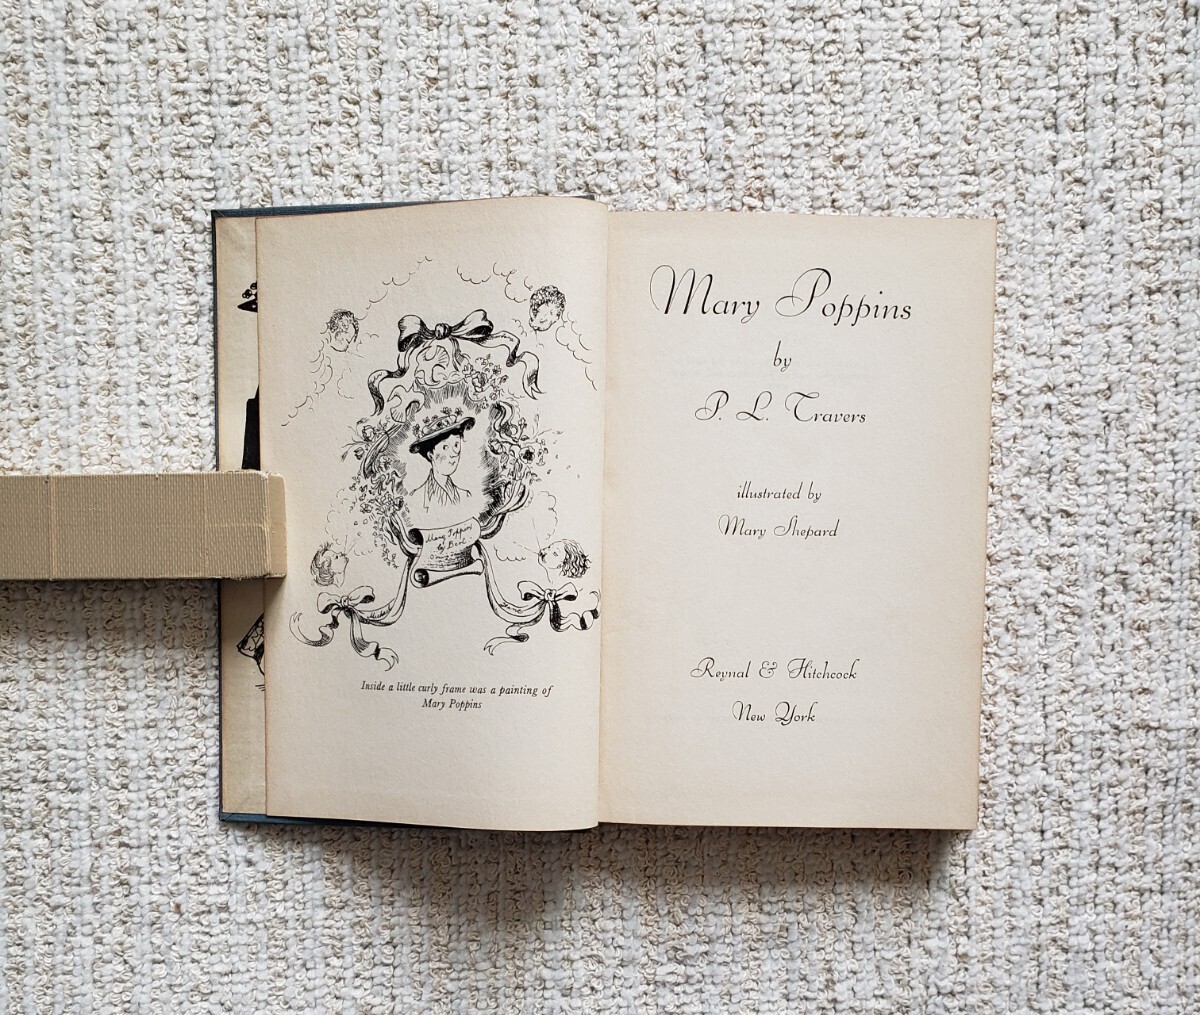 Mary Poppins
by Bert
Inside a little curly frame was a painting of
Mary Poppins
Mary Poppins
by
P. L. Travers
illustrated by
Mary Shepard
Reynal & Hitchcock
New York